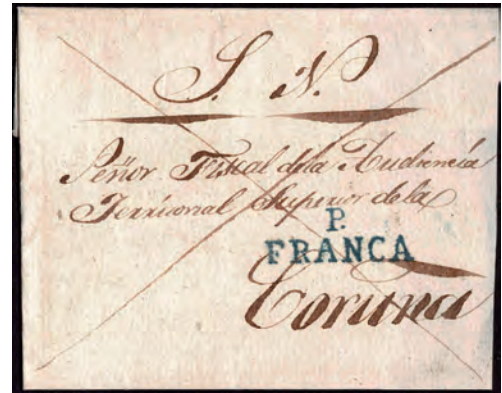 S. N.
Señor Fiscal dela Audiencia
Territorial Superior dela
P.
FRANCA
Coruña